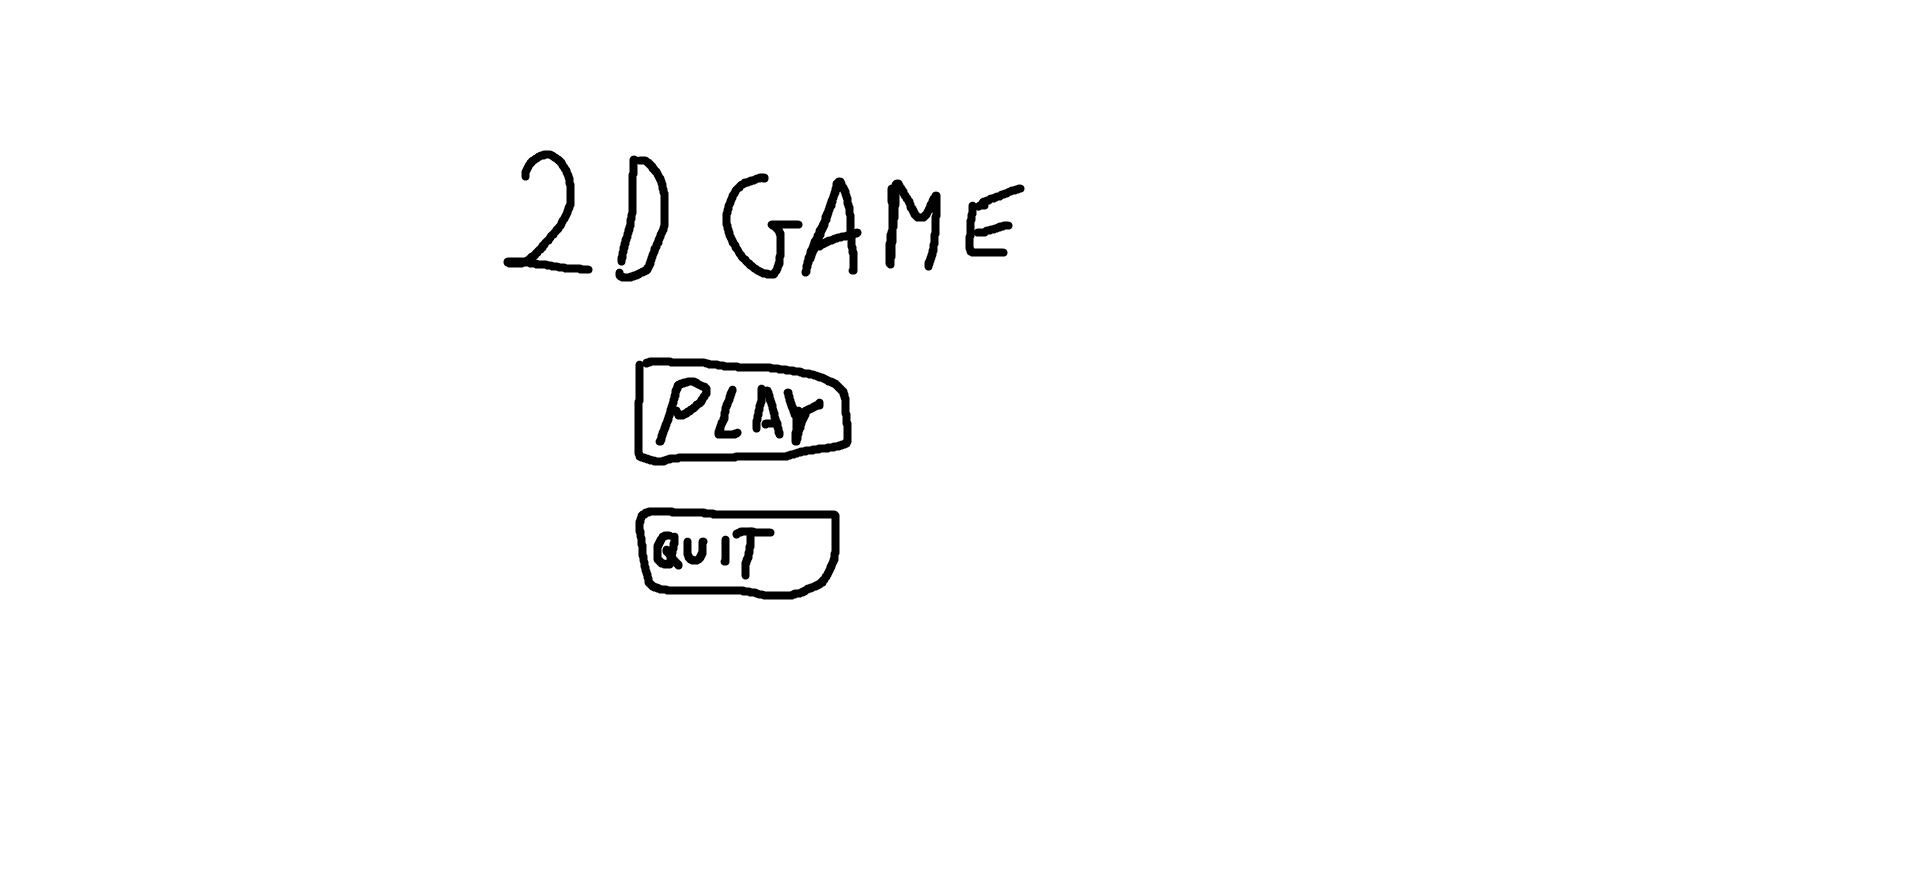 2D GAME
PLAY
QUIT